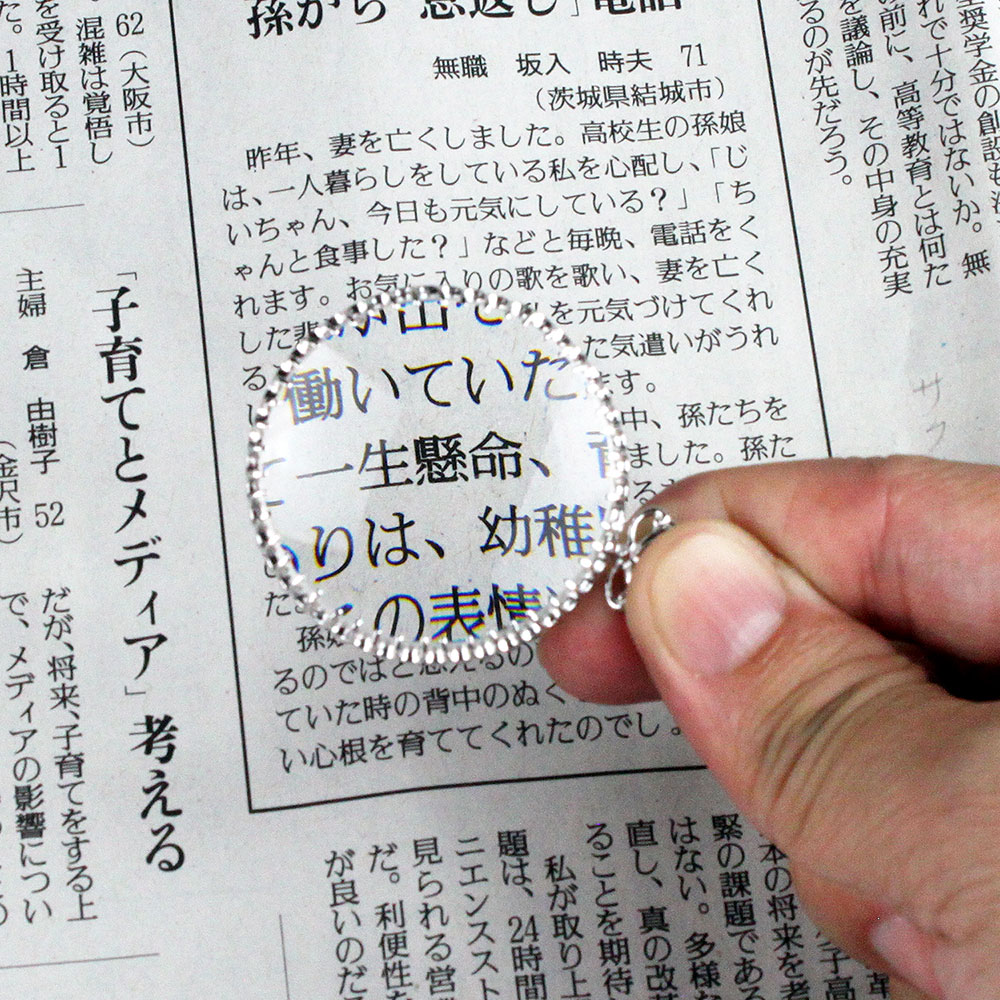 孫から「恩返し」電話
無職 坂入 時夫 71
（茨城県結城市）
昨年、妻を亡くしました。高校生の孫娘
は、一人暮らしをしている私を心配し、「じ
いちゃん、今日も元気にしている？」「ち
ゃんと食事した？」などと毎晩、電話をく
れます。お気に入りの歌を歌い、妻を亡く
した悲
を元気づけてくれ
た気遣いがうれ
ます。
中、孫たちを
ました。孫た
働いていた
一生懸命、
りは、幼稚
の表情
るのではと思えるの
ていた時の背中のぬく
い心根を育ててくれたのでし
62（大阪市）
混雑は覚悟し
を受け取ると1
た。1時間以上
「子育てとメディア」考える
主婦 倉 由樹子 52
（金沢市）
だが、将来、子育てをする上
で、メディアの影響につい
生奨学金の創設も
れで十分ではないか。無
前に、高等教育とは何た
を議論し、その中身の充実
るのが先だろう。
本の将来を考
緊の課題である
はない。多様な
直し、真の改革
ることを期待
私が取り上
題は、24時間
ニエンススト
見られる営
だ。利便性を
が良いのだ